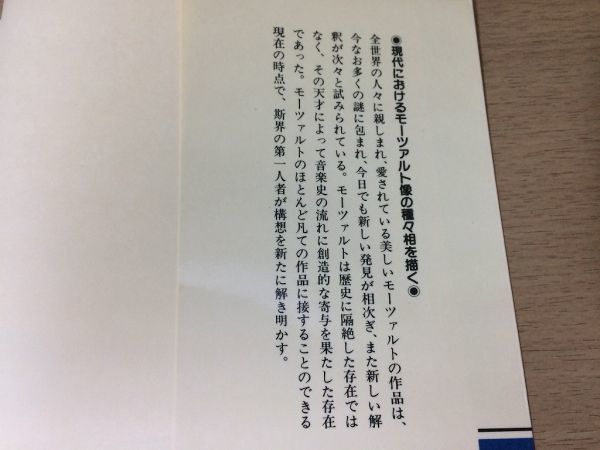 ●現代におけるモーツァルト像の種々相を描く●
全世界の人々に親しまれ、愛されている美しいモーツァルトの作品は、
今なお多くの謎に包まれ、今日でも新しい発見が相次ぎ、また新しい解
釈が次々と試みられている。モーツァルトは歴史に隔絶した存在では
なく、その天才によって音楽史の流れに創造的な寄与を果たした存在
であった。モーツァルトのほとんど凡ての作品に接することのできる
現在の時点で、斯界の第一人者が構想を新たに解き明かす。